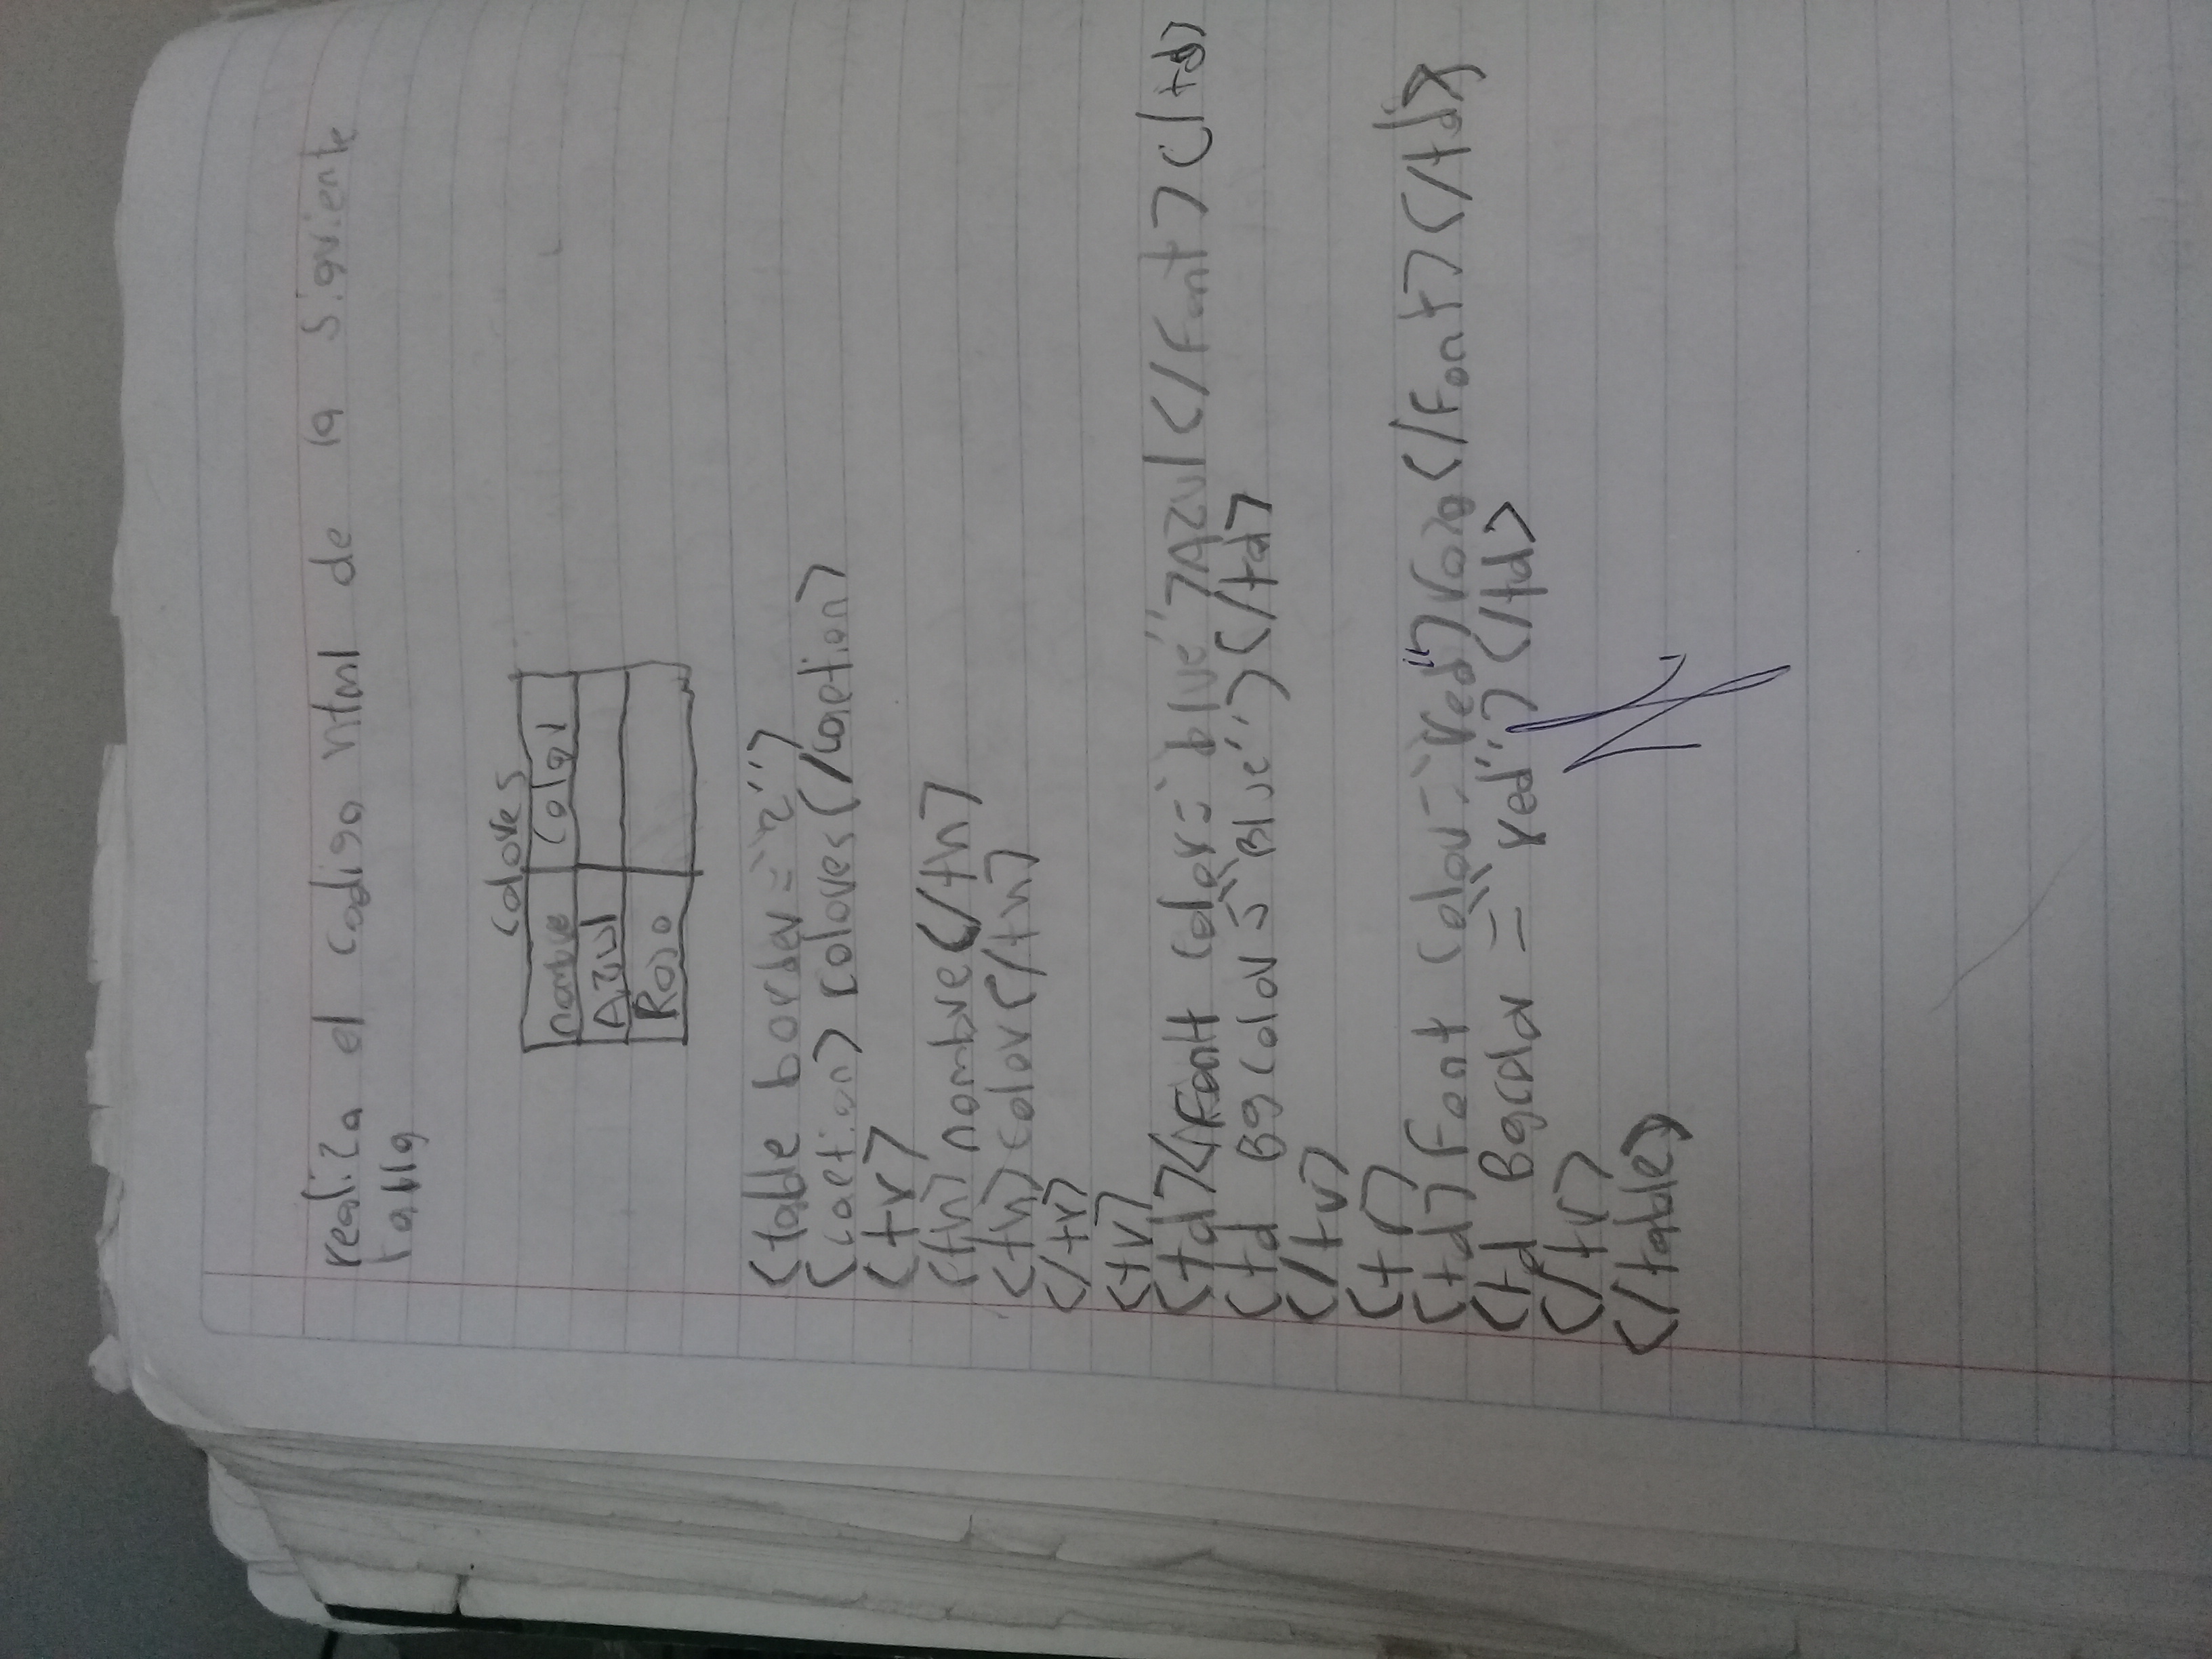 realiza el codigo html de la siguiente
tabla
colores
nombre color
Azul
Rojo
<table border="2">
<caption> colores</caption>
<tr>
<th>nombre</th>
<th>color</th>
</tr>
<tr>
<td><Font color="blue">Azul</Font></td>
<td Bgcolor="Blue"></td>
</tr>
<tr>
<td>Font color="red">rojo</Font></td>
<td Bgcolor="red"></td>
</tr>
</table>